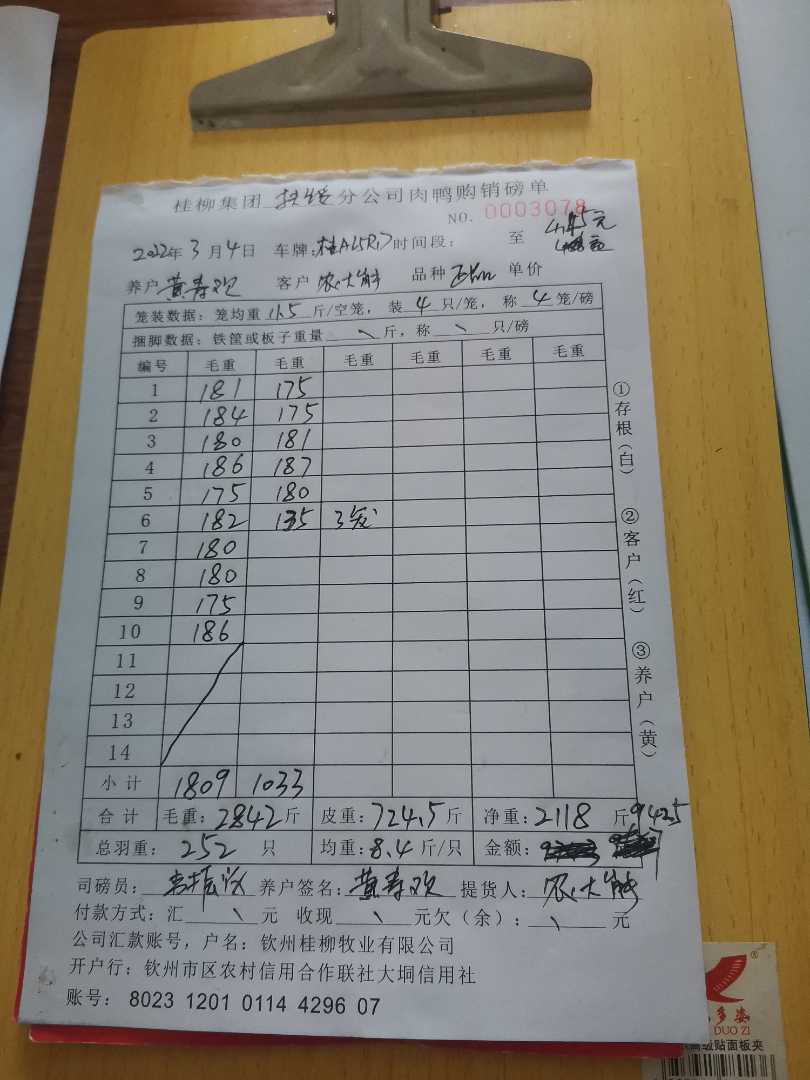 桂柳集团 扶绥 分公司肉鸭购销磅单
NO. 0003078
2022年 3 月 4 日 车牌: 时间段: 至 4.45元
养户 黄寿欢 客户 农大 品种 单价
笼装数据: 笼均重 11.5 斤/空笼, 装 4 只/笼, 称 4 笼/磅
捆脚数据: 铁筐或板子重量 \ 斤, 称 \ 只/磅
编号 毛重 毛重 毛重 毛重 毛重 毛重
1 181 175
2 184 175
3 180 181
4 186 187
5 175 180
6 182 135 3笼
7 180
8 180
9 175
10 186
11
12
13
14
小计 1809 1033
合计 毛重: 2842 斤 皮重: 724.5 斤 净重: 2118 斤 9425
总羽重: 252 只 均重: 8.4 斤/只 金额:
司磅员: 养户签名: 黄寿欢 提货人: 农大
付款方式: 汇 \ 元 收现 \ 元欠(余): \ 元
公司汇款账号, 户名: 钦州桂柳牧业有限公司
开户行: 钦州市区农村信用合作联社大垌信用社
账号: 8023 1201 0114 4296 07
①存根(白)
②客户(红)
③养户(黄)
®
多姿
DUO ZI
高级贴面板夹